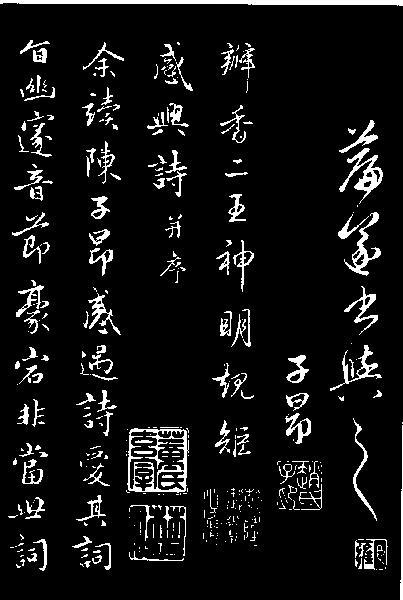 篇遂書與之
子昂
趙氏子昂
瓣香二王神明規矩
感興詩并序
余讀陳子昂感遇詩愛其詞
旨幽邃音節豪宕非當世詞